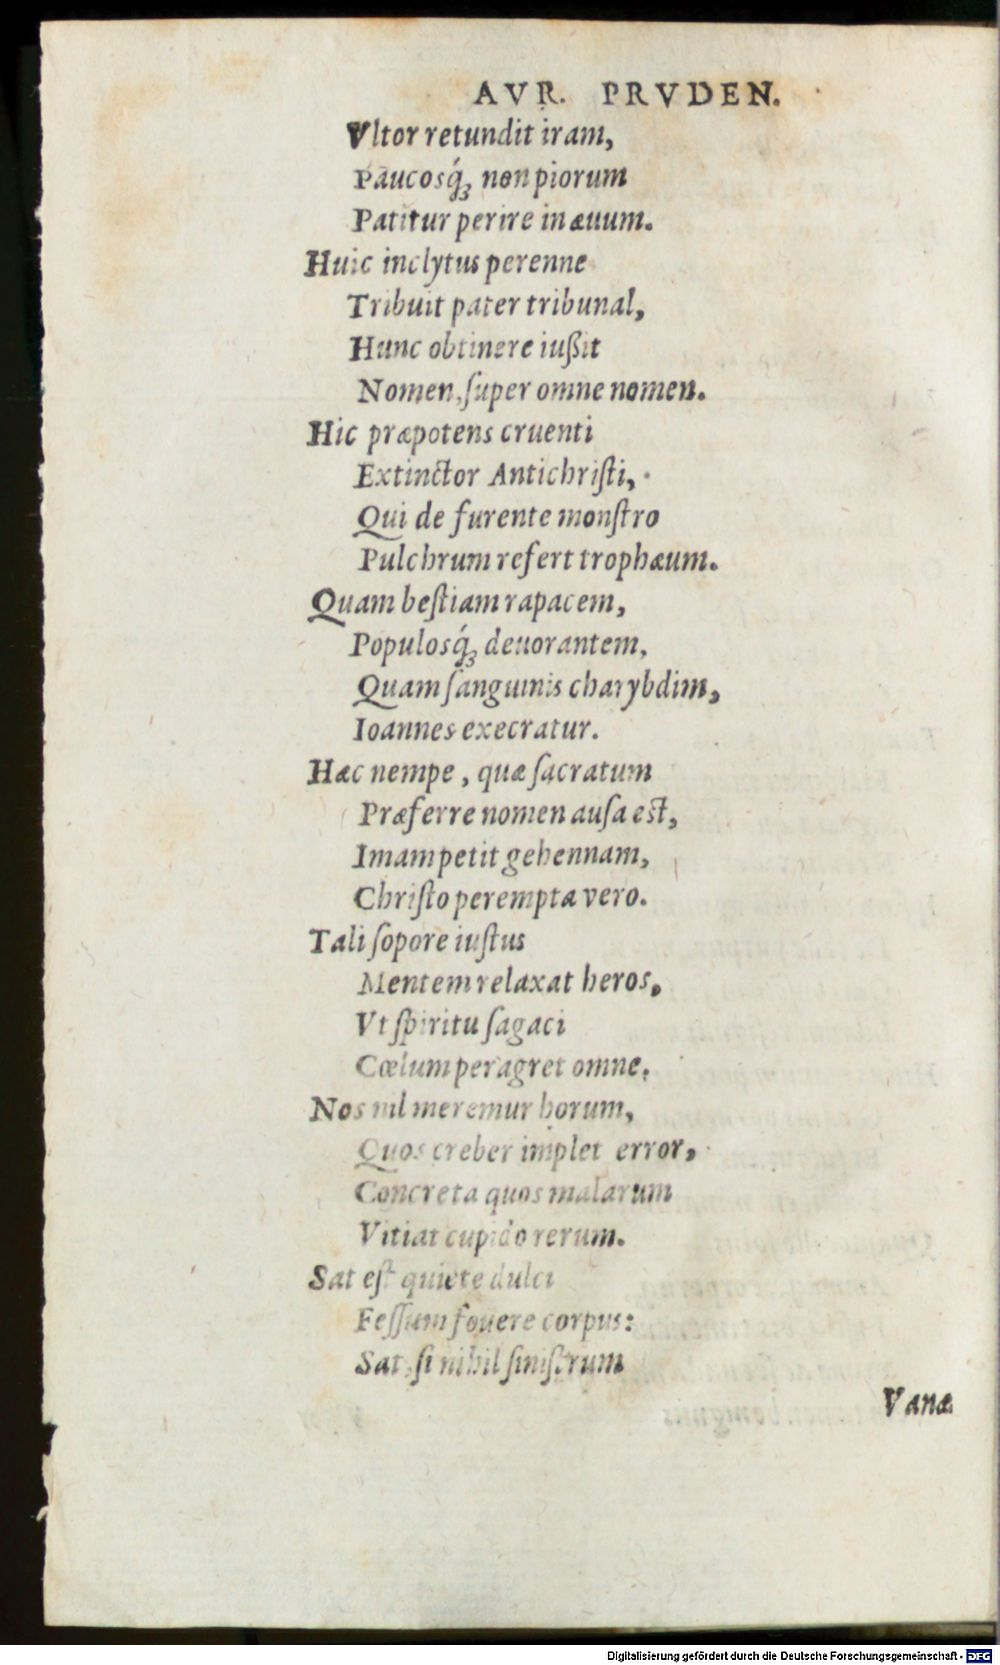 AVR. PRVDEN.
Vltor retundit iram,
Paucosq́ꝫ non piorum
Patitur perire in æuum.
Huic inclytus perenne
Tribuit pater tribunal,
Hunc obtinere iußit
Nomen, ſuper omne nomen.
Hic præpotens cruenti
Extinctor Antichriſti,
Qui de furente monſtro
Pulchrum refert trophæum.
Quam beſtiam rapacem,
Populosq́ꝫ deuorantem,
Quam ſanguinis charybdim,
Ioannes execratur.
Hæc nempe, quæ ſacratum
Præferre nomen auſa eſt,
Imam petit gehennam,
Chriſto perempta vero.
Tali ſopore iuſtus
Mentem relaxat heros,
Vt ſpiritu ſagaci
Cœlum peragret omne.
Nos nil meremur horum,
Quos creber implet error,
Concreta quos malarum
Vitiat cupido rerum.
Sat eſt quiete dulci
Feſſum fouere corpus:
Sat, ſi nihil ſiniſtrum
Vanæ
Digitalisierung gefördert durch die Deutsche Forschungsgemeinschaft - DFG